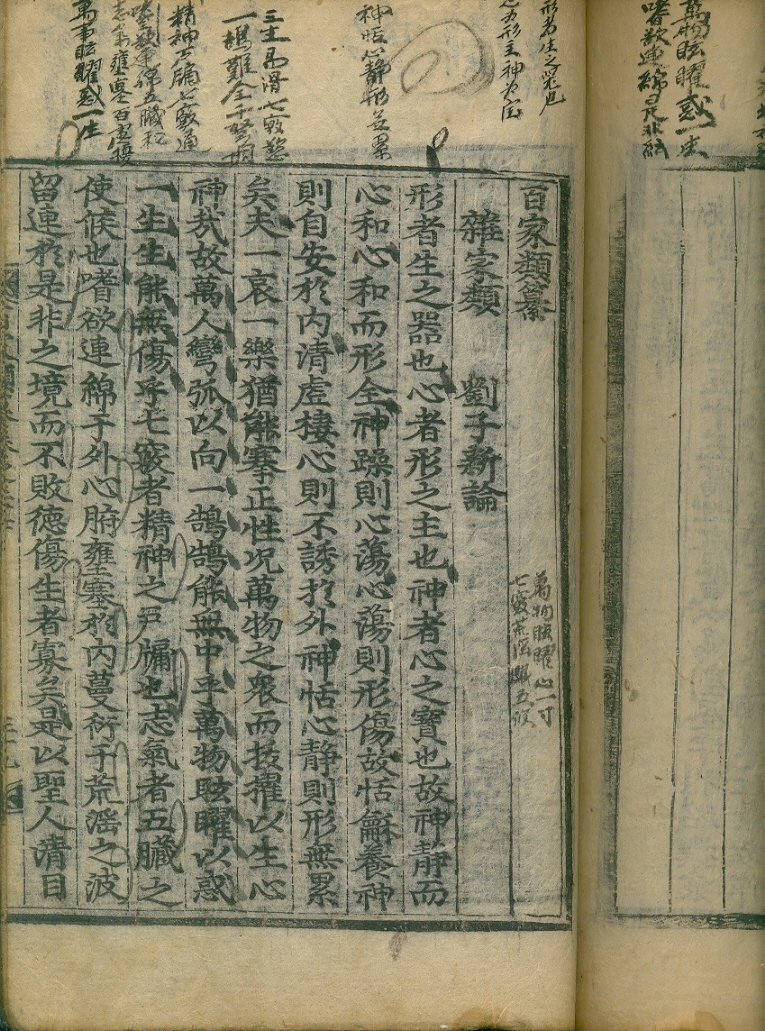 百家類纂
雜家類　劉子新論
形者生之器也心者形之主也神者心之寶也故神靜而
心和心和而形全神躁則心蕩心蕩則形傷故恬龢養神
則自安於内清虛棲心則不誘於外神恬心靜則形無累
矣夫一哀一樂猶能搴正性况萬物之衆而拔擢以生心
神㢤故萬人彎弧以向一鵠鵠能無中乎萬物眩曜以惑
一生生能無傷乎七竅者精神之戸牖也志氣者五臟之
使候也嗜欲連綿于外心腑壅塞於内蔓衍于荒滛之波
留連於是非之境而不敗德傷生者寡矣是以聖人清目
萬物眩曜心一寸
形者生之器也
心為形主神為宝
神恬心静形無累
一鵠難全千弩
精神戸牖七竅通
嗜欲連綿五臟
萬物眩曜惑一生
萬物眩曜惑一生
嗜欲連綿是非